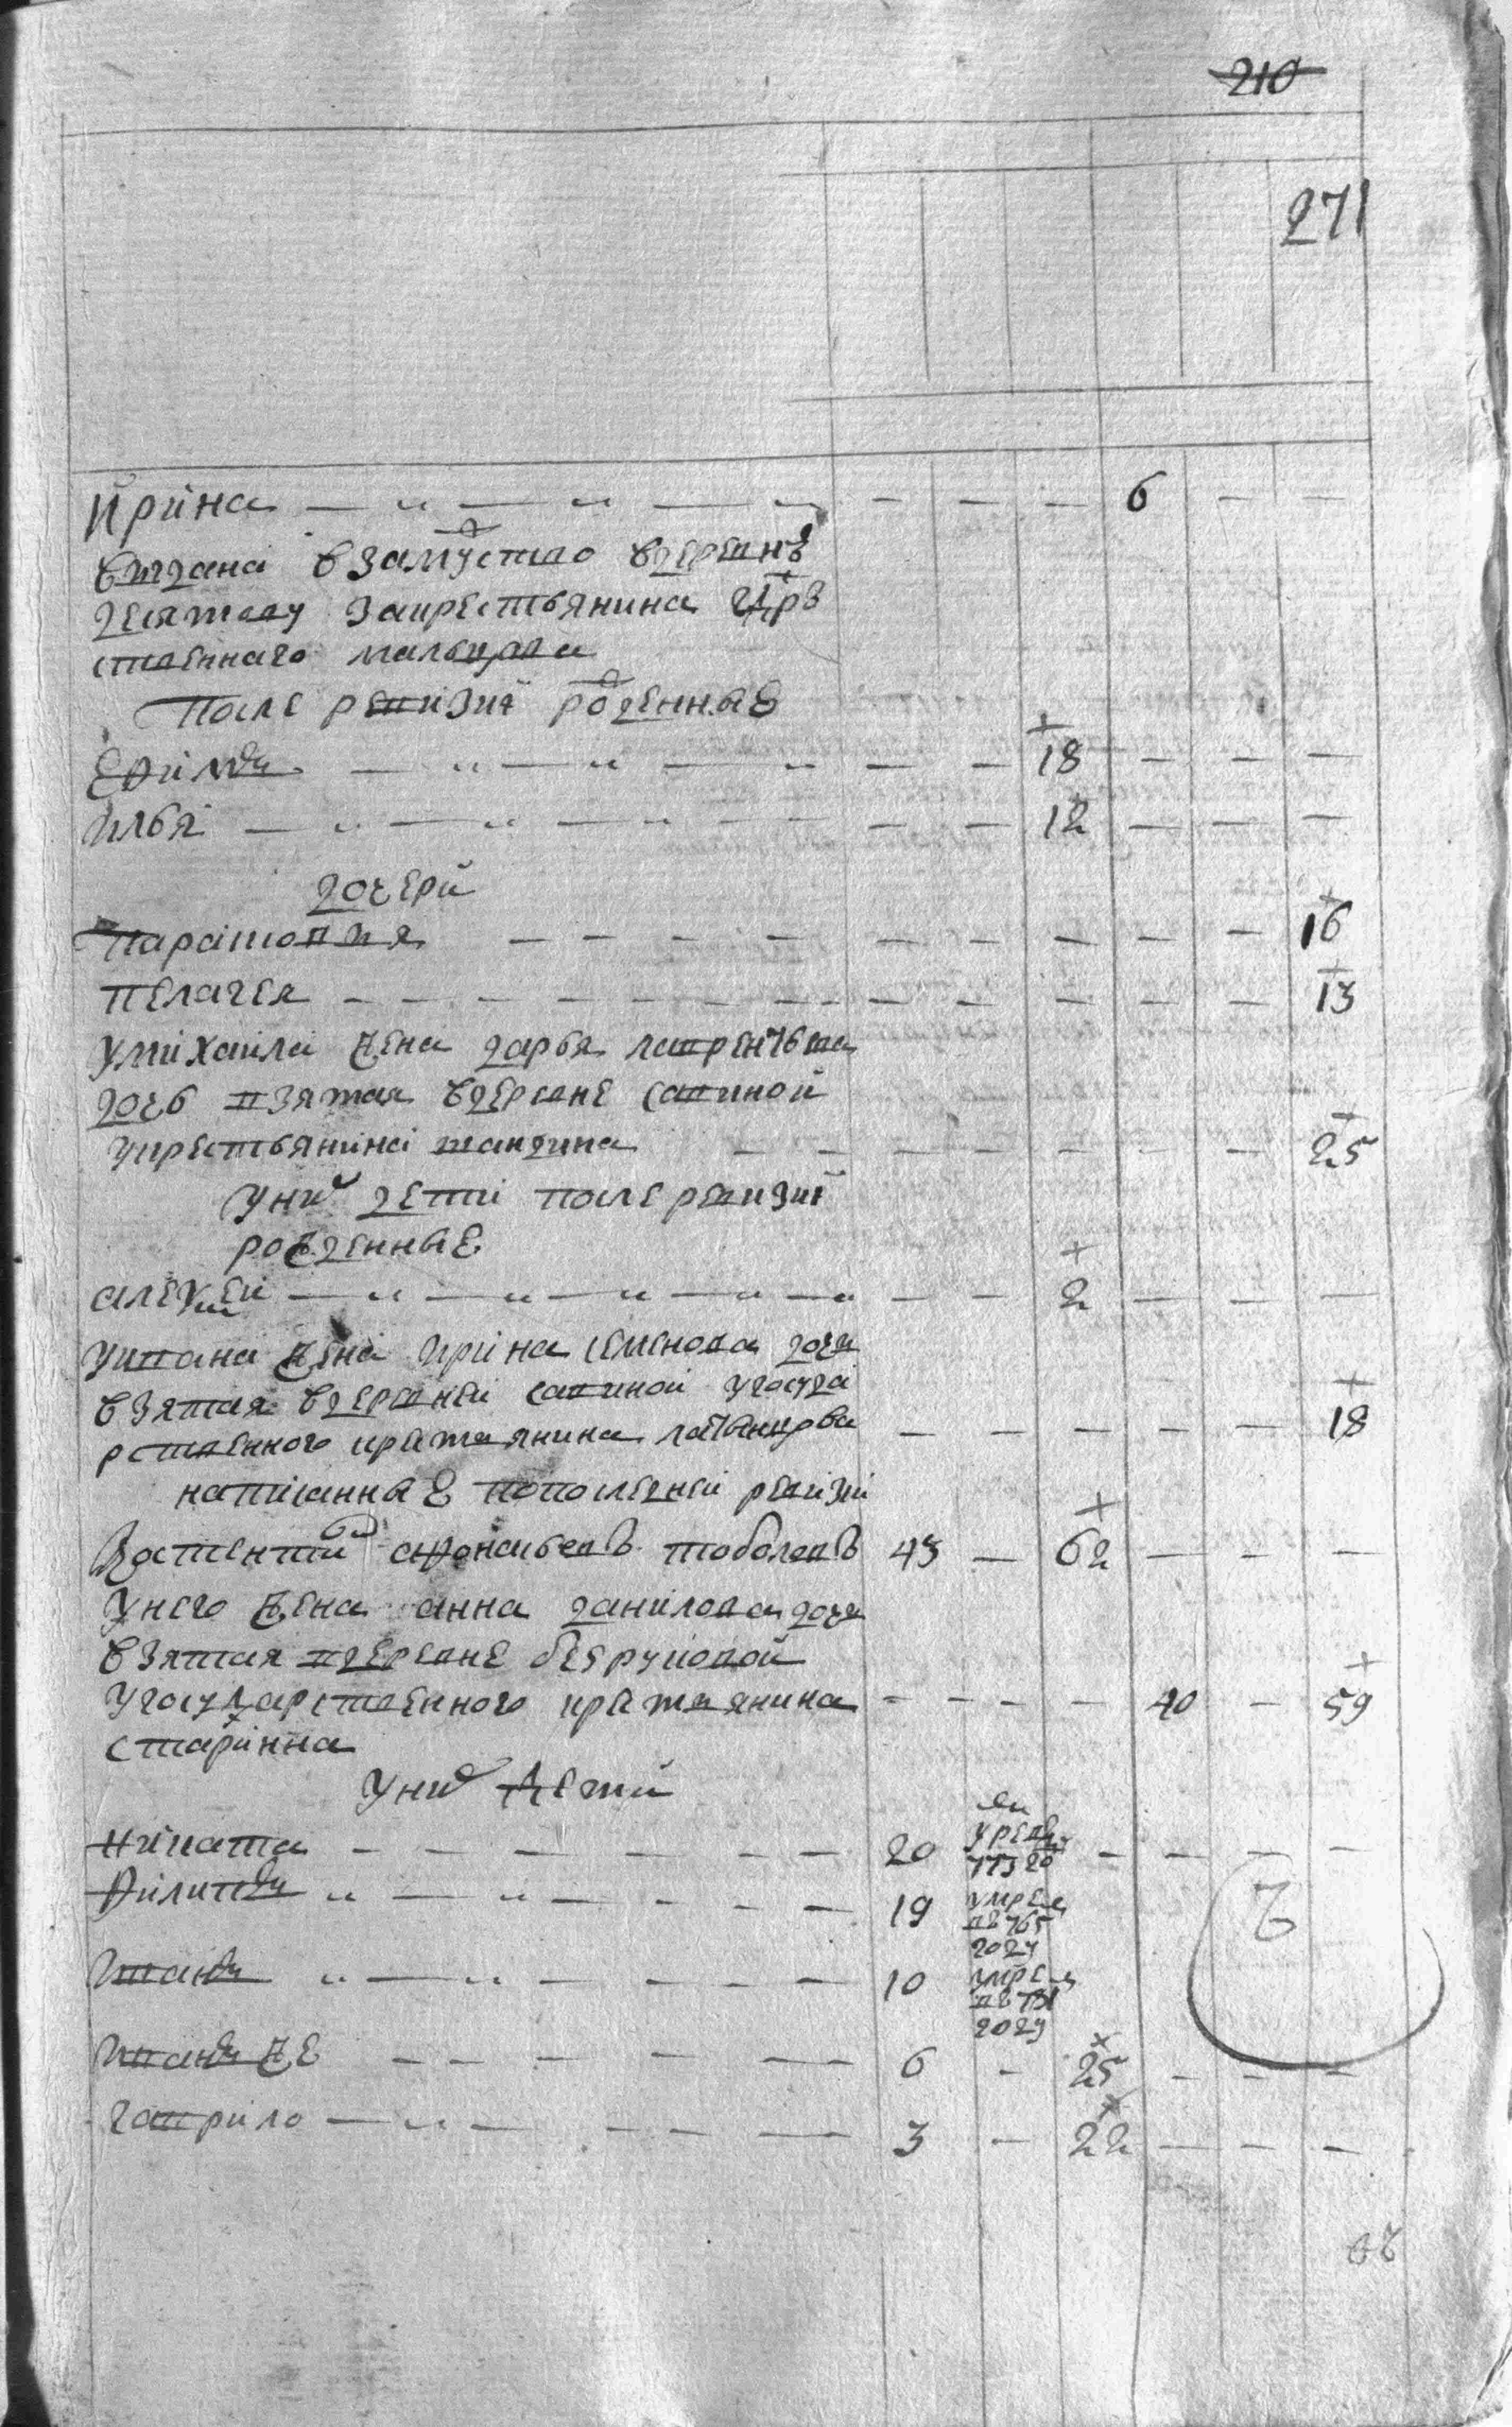 210
271
Ирина — „ — „ — — — — — 6 — —
выдана взамуство вдеревнѣ
десятову закрестьянина гдрв
ственнаго малцова
После ревизиї роденные
Ефимъ — „ — „ — „ — — 18 — — —
Илья — „ — „ — „ — — — — 12 — — —
дочери
Парасковия — — — — — — — — — 16
Пелагея — — — — — — — — — — — — 13
Умихаила жена дарья лаврентьева
дочь взятая вдеревне савиной
укрестьянина — — — — — — — 25
Уних дети после ревизиї
рожденные
алексей — „ — „ — „ — „ — „ — — 2 — — —
Уивана жена ирина семенова дочь
взятая вдеревней савиной угосуда
рственного крестьянина — — — — — 18
написанные попоследней ревизиї
Терентий афонасьевъ тоболевъ 43 — 62 — — —
Унего жена анна данилова дочь
взятая вдеревне безруковой
Угосударственного крестьянина — — — — 40 — 59
старинна
Уних дети
никита — — — — — — 20 — — — —
Филипъ „ — „ — — — 19 умре
в 765
году
Иванъ „ — „ — — — — 10 умре
в
году
Иванъ же — — — — — 6 — 25 — — —
гаврило — „ — — — — 3 — 22 — — —